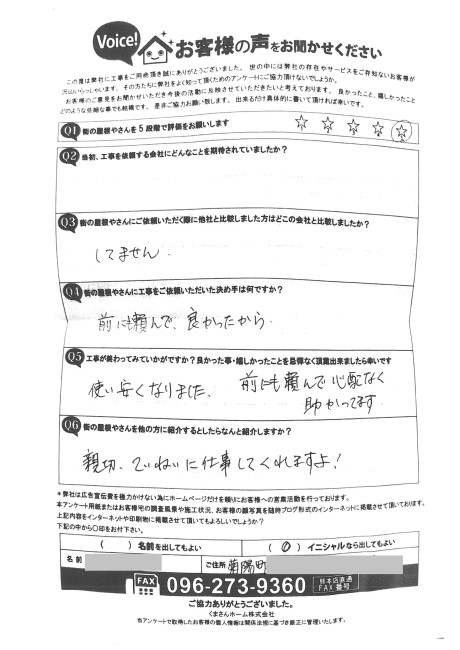 Voice! お客様の声をお聞かせください
この度は弊社に工事をご用命頂き誠にありがとうございました。世の中には弊社の存在やサービスをご存知ないお客様が
沢山いらっしゃいます。その方たちに弊社をよく知って頂くためのアンケートにご協力頂けないでしょうか。
お客様のご意見をお聞かせいただき今後の活動に反映させていただきたいと考えております。良かったこと、嬉しかったこと
どのような些細な事でも結構です。是非ご協力お願い致します。出来るだけ具体的に書いて頂ければ幸いです。
Q1 街の屋根やさんを5段階で評価をお願いします
1 2 3 4 5
Q2 当初、工事を依頼する会社にどんなことを期待されていましたか?
Q3 街の屋根やさんにご依頼いただく際に他社と比較しました方はどこの会社と比較しましたか?
してません.
Q4 街の屋根やさんに工事をご依頼いただいた決め手は何ですか?
前にも頼んで、良かったから.
Q5 工事が終わってみていかがですか?良かった事・嬉しかったことを忌憚なく頂戴出来ましたら幸いです
使い安くなりました、 前にも頼んで心配なく
助かってます
Q6 街の屋根やさんを他の方に紹介するとしたらなんと紹介しますか?
親切、ていねいに仕事してくれますよ!
*弊社は広告宣伝費を極力かけない為にホームページだけを頼りにお客様への営業活動を行っております。
本アンケート用紙またはお客様宅の調査風景や施工状況、お客様の顔写真を随時ブログ形式のインターネットに掲載させて頂いております。
上記内容をインターネットや印刷物に掲載させて頂いてもよろしいでしょうか?
下記の中から〇印をお付下さい。
( ) 名前を出してもよい ( 〇 ) イニシャルなら出してもよい
名前 ご住所 菊陽町
FAX 096-273-9360 熊本店直通 FAX番号
ご協力ありがとうございました。
くまさんホーム株式会社
当アンケートで取得したお客様の個人情報は関係法規に基づき厳正に管理いたします。